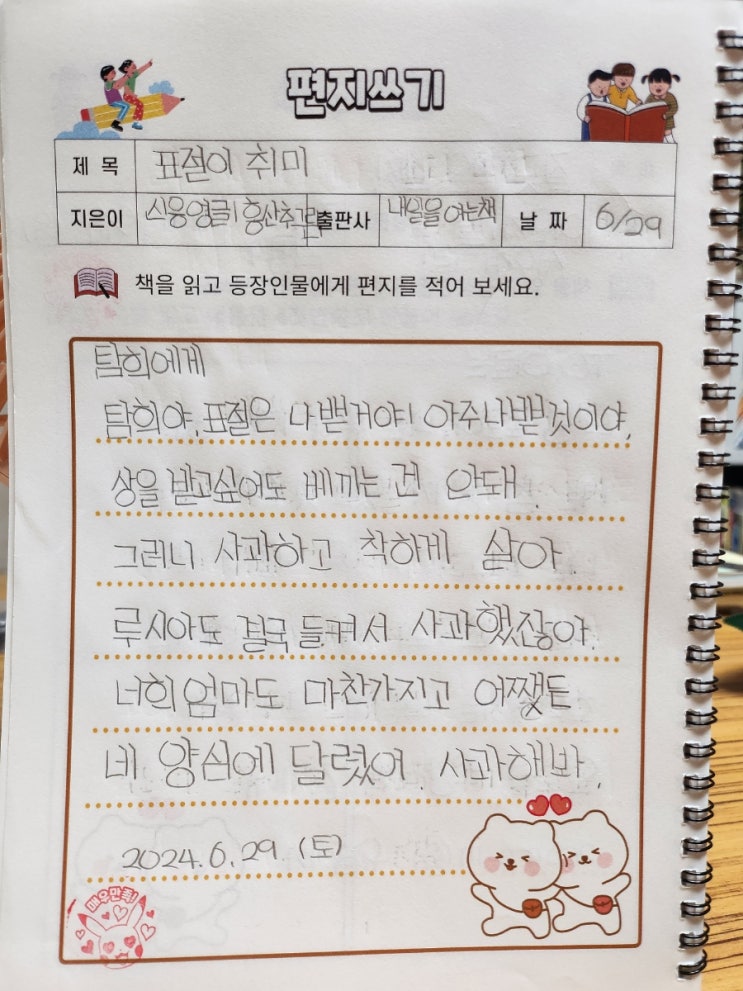 편지쓰기
제 목 표절이 취미
지은이 신웅 영글 | 홍산추 그림 출판사 내일을 여는책 날 짜 6/29
책을 읽고 등장인물에게 편지를 적어 보세요.
탐희에게
탐희야, 표절은 나쁜거야! 아주나쁜것이야,
상을 받고싶어도 베끼는 건 안돼.
그러니 사과하고 착하게 살아.
루시아도 결국 들켜서 사과했잖아.
너희 엄마도 마찬가지고 어쨋든
네 양심에 달렸어. 사과해봐.
2024.6.29.(토)
매우만족!